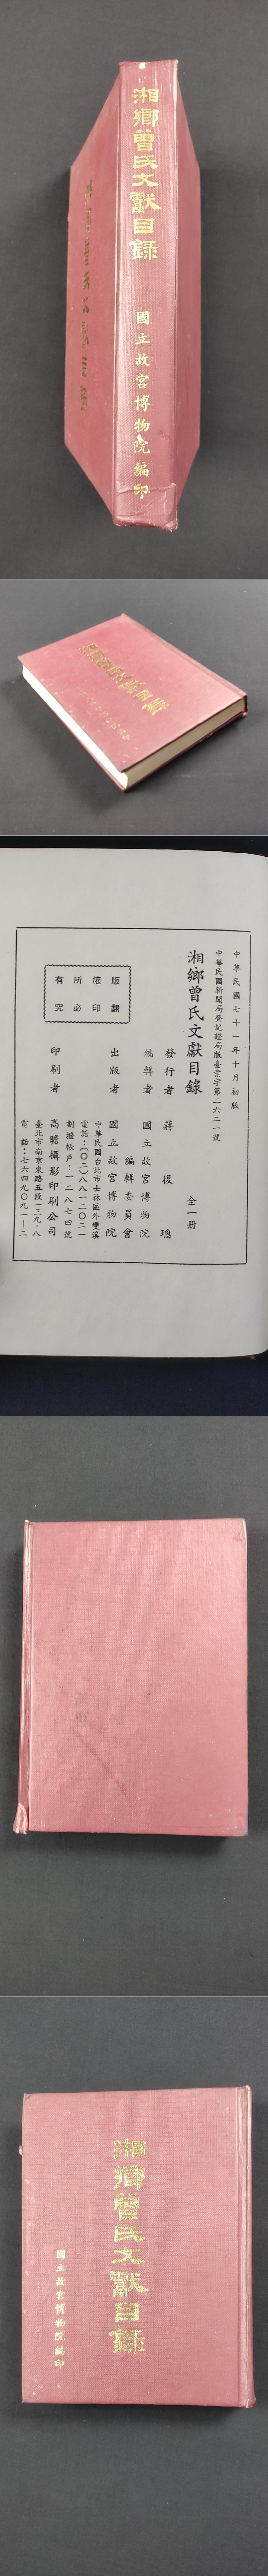 湘鄉曾氏文獻目錄
國立故宮博物院編印
中華民國七十一年十月初版
中華民國新聞局登記證局版臺業字第二六二一號
湘鄉曾氏文獻目錄 全一冊
發行者 蔣復璁
編輯者 國立故宮博物院
編輯委員會
出版者 國立故宮博物院
中華民國台北市士林區外雙溪
電話：(〇二)八八一二〇二一
劃撥帳戶：一二八七四號
印刷者 高瞻攝影印刷公司
臺北市南京東路五段一三九-八
電話：七六四九〇九一-二
版翻
權印
所必
有究
湘鄉曾氏文獻目錄
國立故宮博物院編印